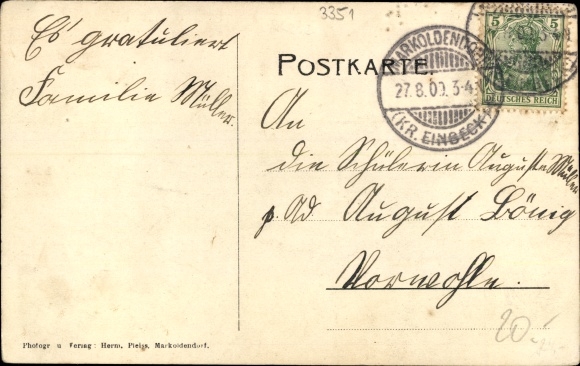 3351
Es gratuliert
Familie Müller.
POSTKARTE.
MARKOLDENDORF
27.8.09. 3-4
(KR. EINBECK)
5 5
DEUTSCHES REICH
An
die Schülerin Auguste Müller
p. Ad. August Bönig
Vorwohle.
20.-
Photogr u Verlag: Herm. Pleiss, Markoldendorf.